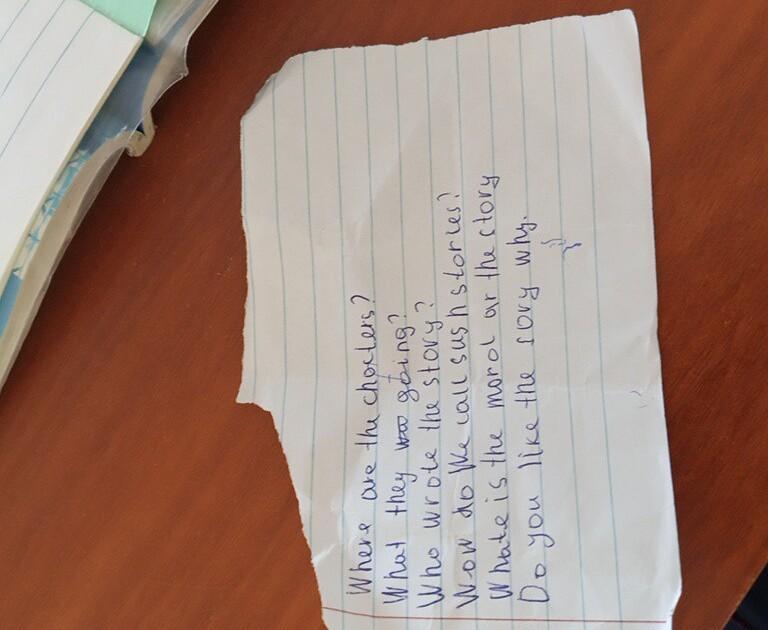 Where are the chacters?
What they going?
Who wrote the story?
Wow do We call sush stories?
Whate is the moral ar the story
Do you like the sory why.